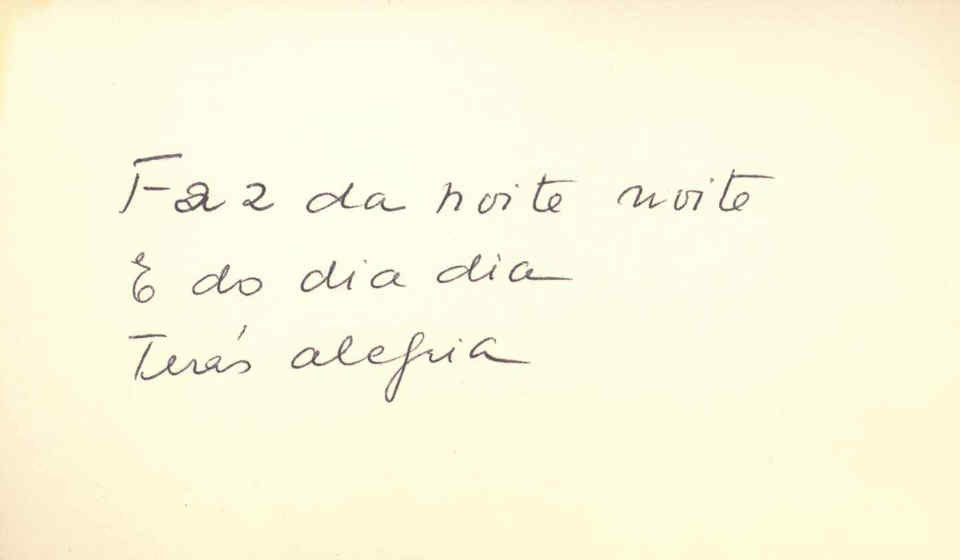 Faz da noite noite
E do dia dia
Terás alegria